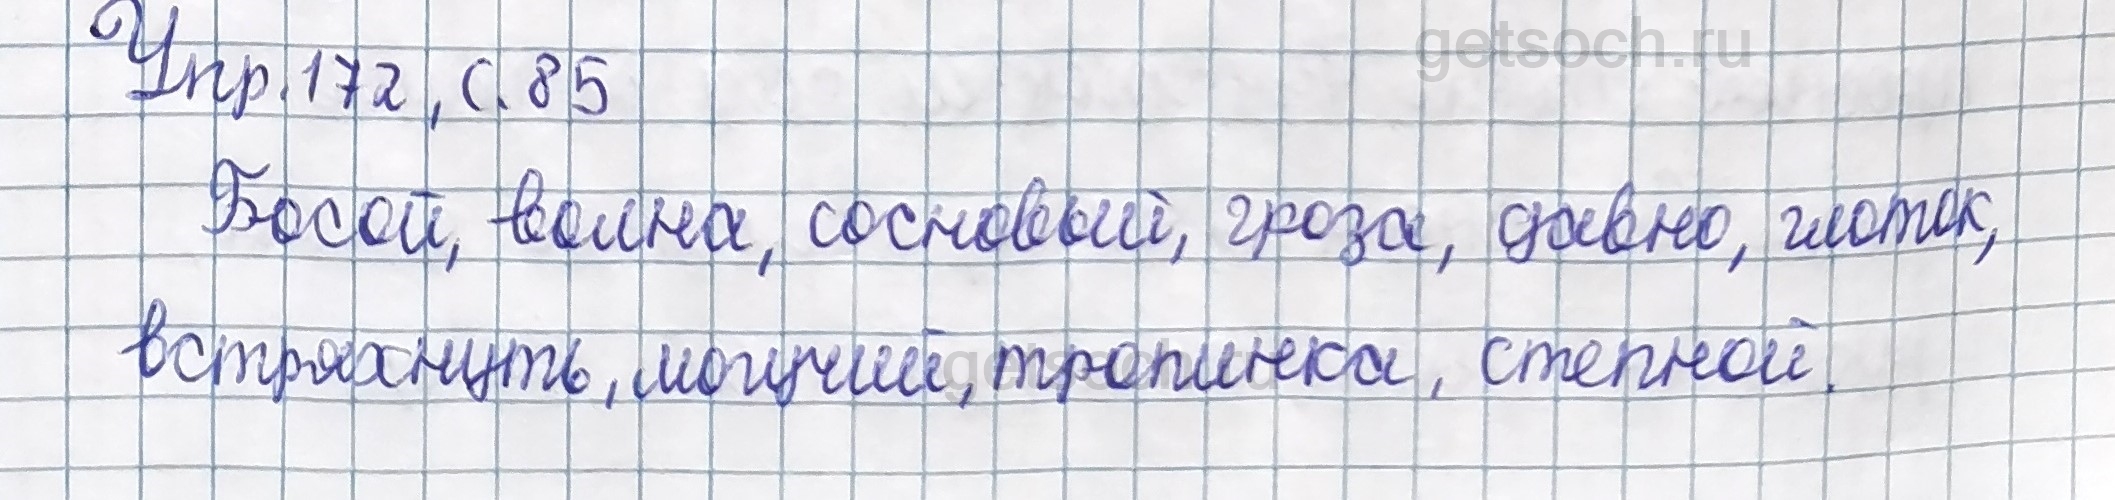 getsoch.ru
Упр. 172, с. 85
Босой, волна, сосновый, гроза, давно, глоток,
встряхнуть, могучий, тропинка, степной.
getsoch.ru